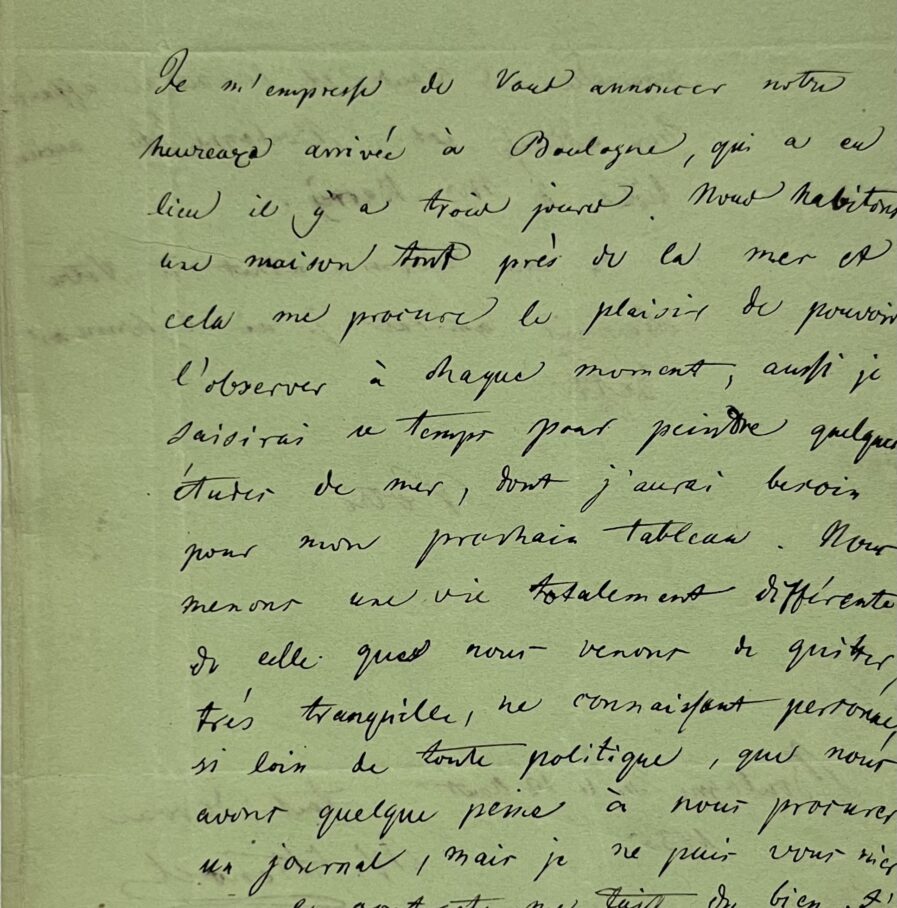 Je m'empresse de Vous annoncer notre
heureuse arrivée à Boulogne, qui a eu
lieu il y a trois jours. Nous habitons
une maison tout près de la mer et
cela me procure le plaisir de pouvoir
l'observer à chaque moment, aussi je
saisirai ce temps pour peindre quelques
études de mer, dont j'aurai besoin
pour mon prochain tableau. Nous
menons une vie totalement différente
de celle que nous venons de quitter,
très tranquille, ne connaissant persone,
si loin de toute politique, que nous
avons quelque peine à nous procurer
un journal, mais je ne puis vous nier
ne fait du bien